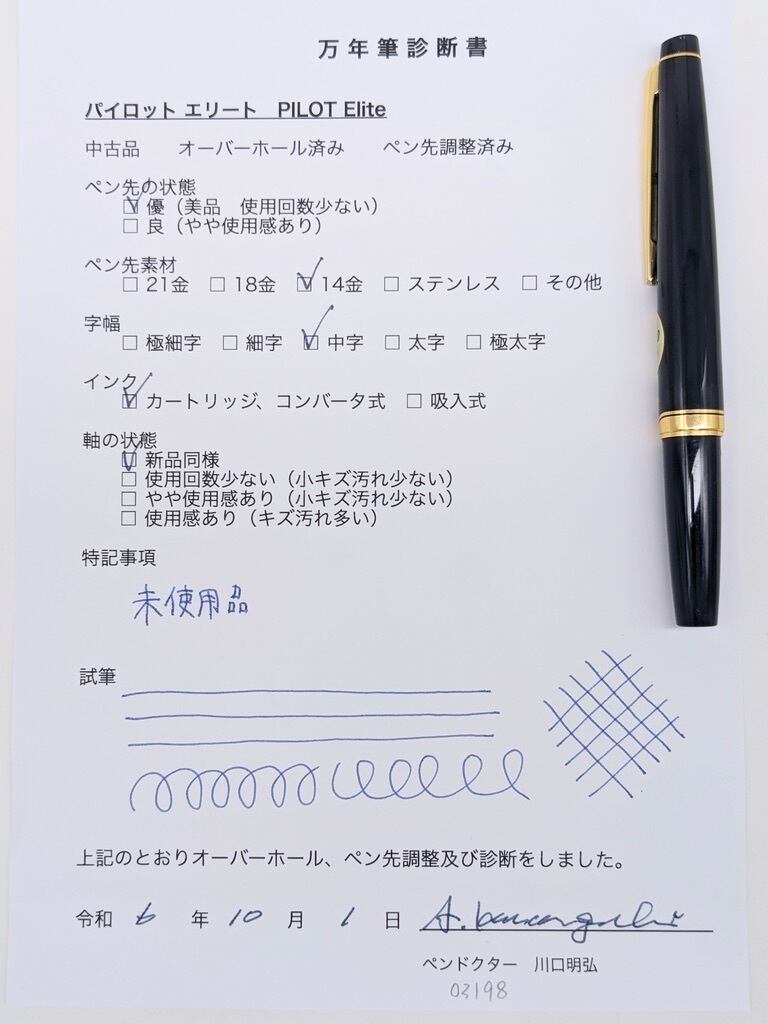 万年筆診断書
パイロット エリート　PILOT Elite
中古品　　オーバーホール済み　　ペン先調整済み
ペン先の状態
☑ 優（美品　使用回数少ない）
☐ 良（やや使用感あり）
ペン先素材
☐ 21金　☐ 18金　☑ 14金　☐ ステンレス　☐ その他
字幅
☐ 極細字　☐ 細字　☑ 中字　☐ 太字　☐ 極太字
インク
☑ カートリッジ、コンバータ式　☐ 吸入式
軸の状態
☑ 新品同様
☐ 使用回数少ない（小キズ汚れ少ない）
☐ やや使用感あり（小キズ汚れ少ない）
☐ 使用感あり（キズ汚れ多い）
特記事項
未使用品
試筆
上記のとおりオーバーホール、ペン先調整及び診断をしました。
令和 6 年 10 月 1 日 A. Kawaguchi
ペンドクター　川口明弘
03198